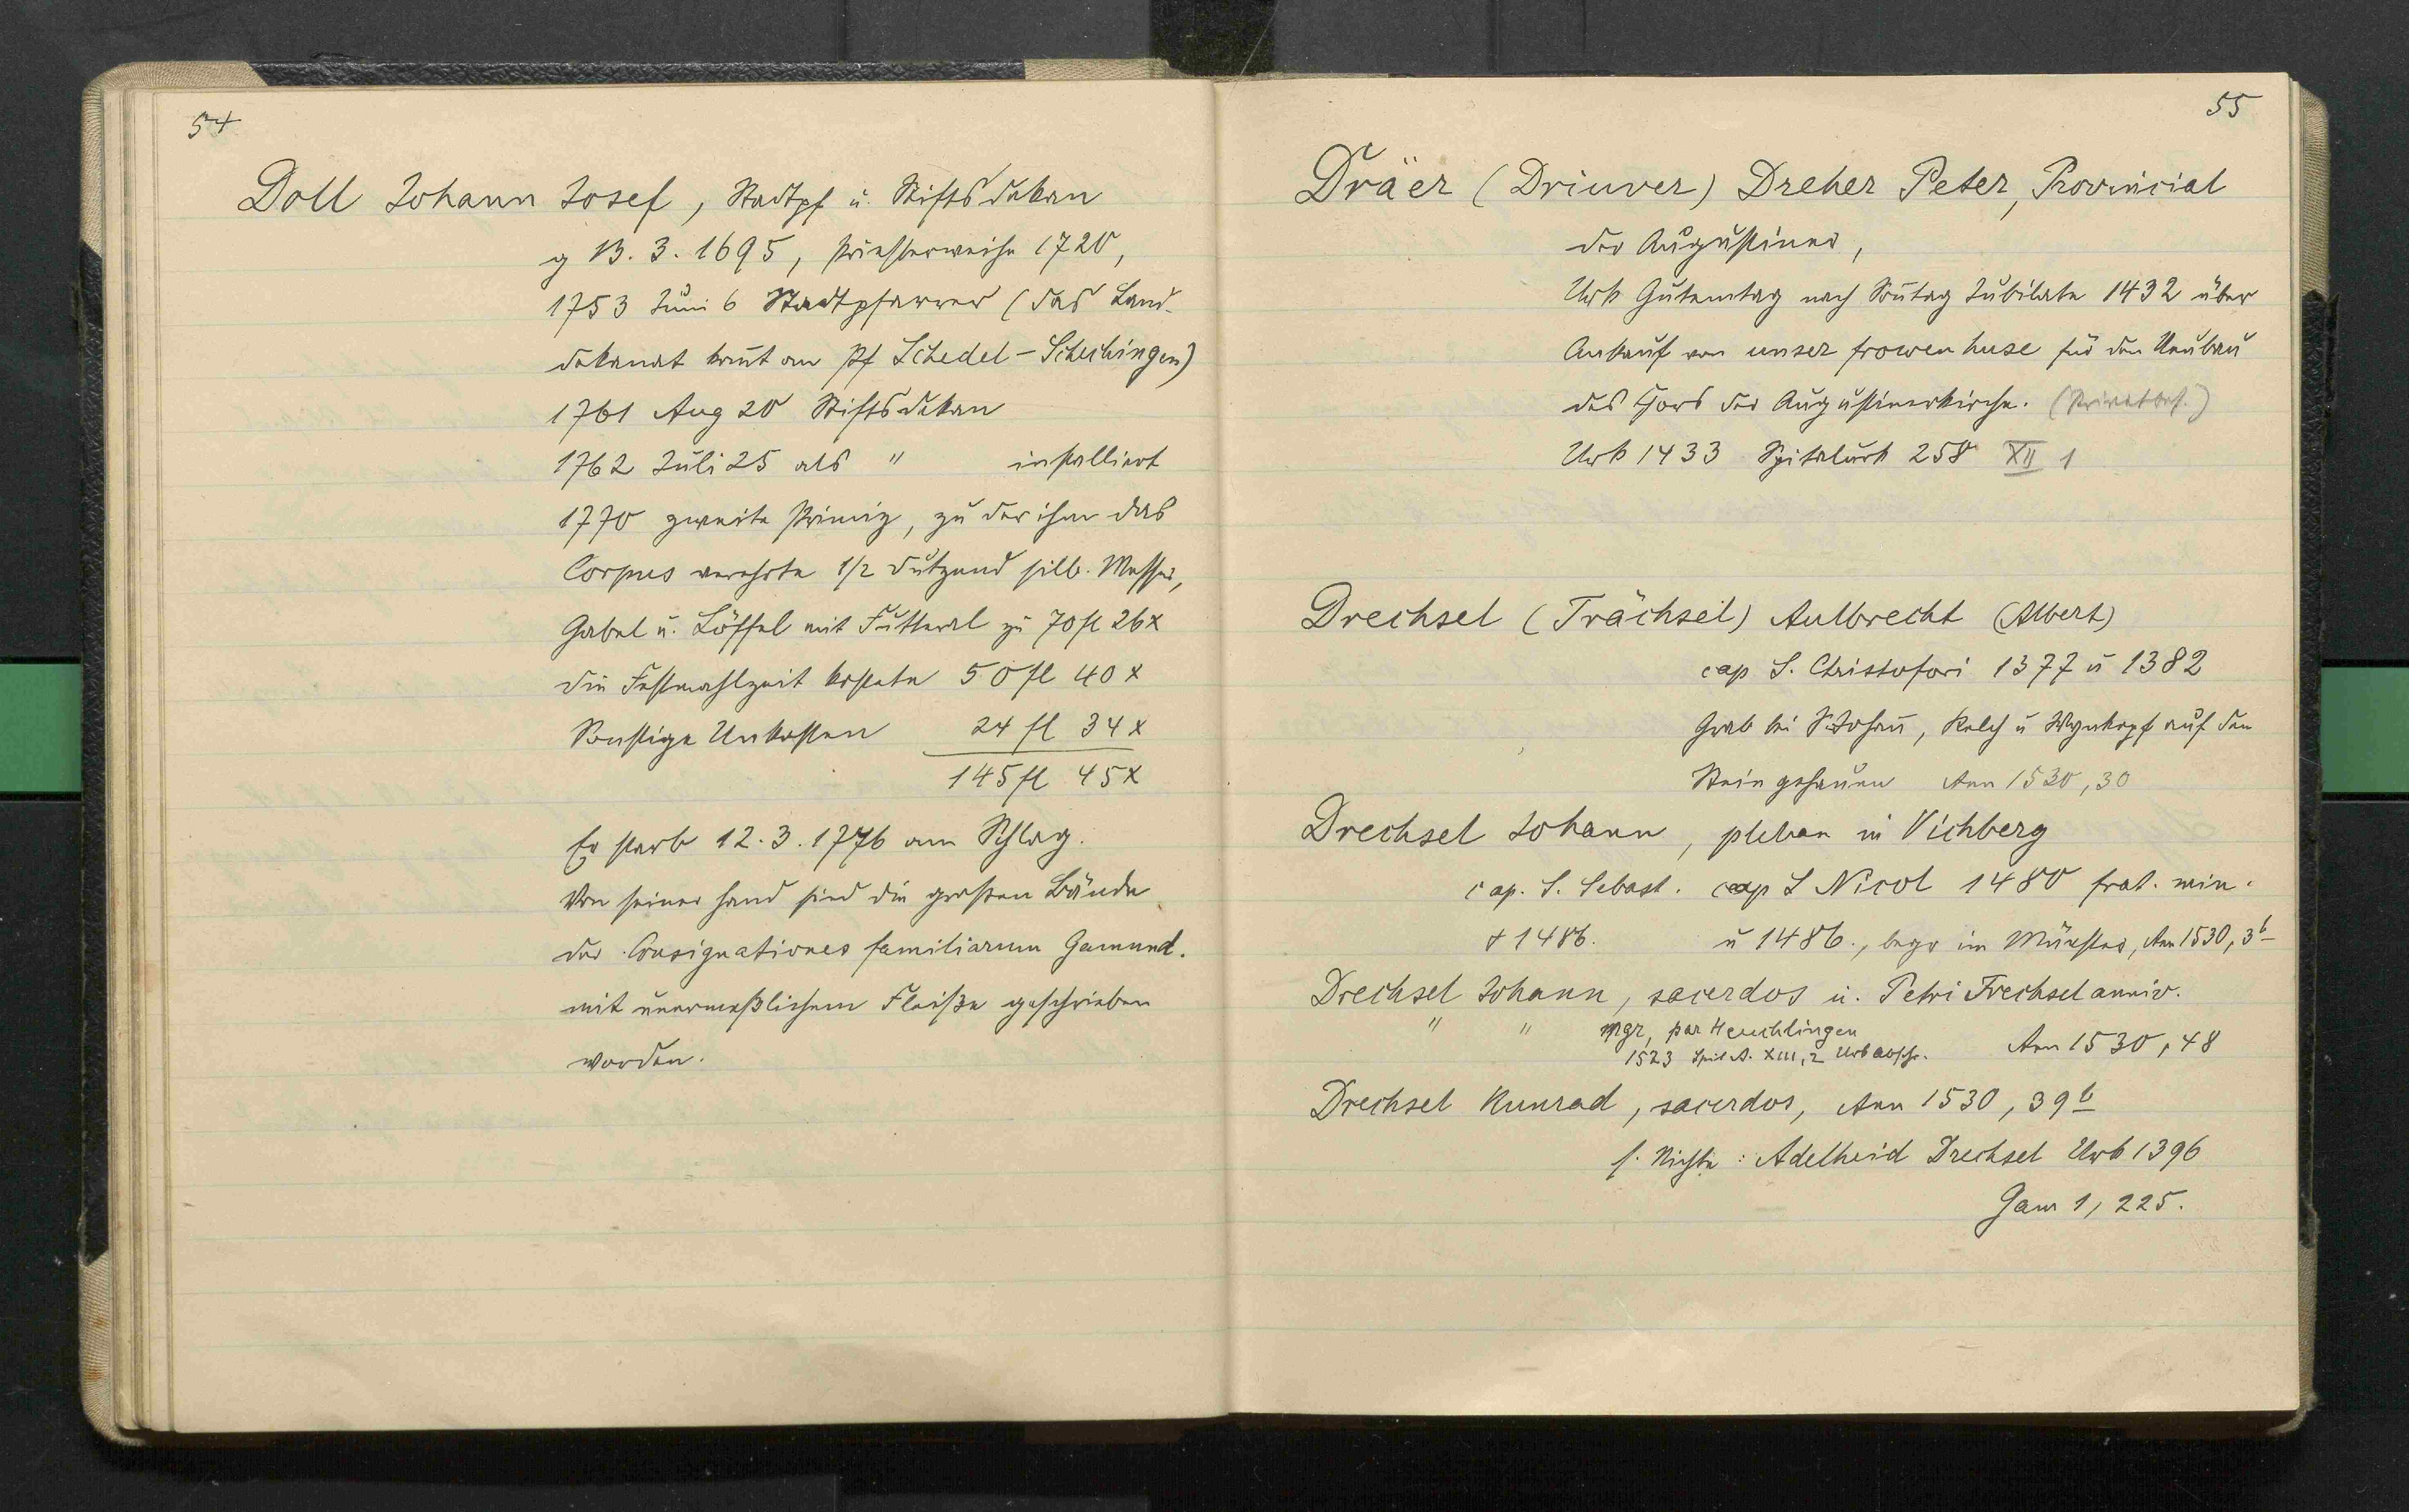 54
Doll Johann Josef, Stadtpf u. Stiftsdekan
g 13. 3. 1695, Priesterweihe 1720,
1753 Juni 6 Stadtpfarrer (das Land-
dekanat kom̄t an Pf Schedel-Schechingen)
1761 Aug 20 Stiftsdekan
1762 Juli 25 als " installiert
1770 zweite Primiz, zu der ihm das
Corpus verehrte 1/2 Dutzend silb. Messer,
Gabel u. Löffel mit Futteral zu 70 fl 26 x
die Festmahlzeit kostete 50 fl 40 x
Sonstige Unkosten 24 fl 34 x
145 fl 45 x
Er starb 12. 3. 1776 am Schlag.
Von seiner Hand sind die grossen Bände
der Consignationes familiarum Gamund.
mit unermeßlichem Fleiße geschrieben
worden.
55
Dräer (Driuver) Dreher Peter, Provincial
der Augustiner,
Urk Gutemtag nach Son̄tag Jubilate 1432 über
Ankauf von unser frowen huse für den Neubau
des Chors der Augustinerkirche. (Privatbes.)
Urk 1433 Spitalurk 258 XII 1
Drechsel (Trächsel) Aulbrecht (Albert)
cap S. Christofori 1377 u 1382
Grab bei St Johan̄, Kelch u auf den
Stein gehauen Ann 1530, 30
Drechsel Johann, pleban in Vichberg
cap. S. Sebast. cap S Nicol 1480 frat. min.
+ 1486. u 1486., begr im Münster, Ann 1530, 3b
Drechsel Johann, sacerdos u. Petri Trechsel anniv.
" " mgr, par Heuchlingen
1523 Spit A. XIII, 2 Urb abschr. Ann 1530, 48
Drechsel Kunrad, sacerdos, Ann 1530, 39b
s. Nichte: Adelheid Drechsel Urb 1396
Gam 1, 225.